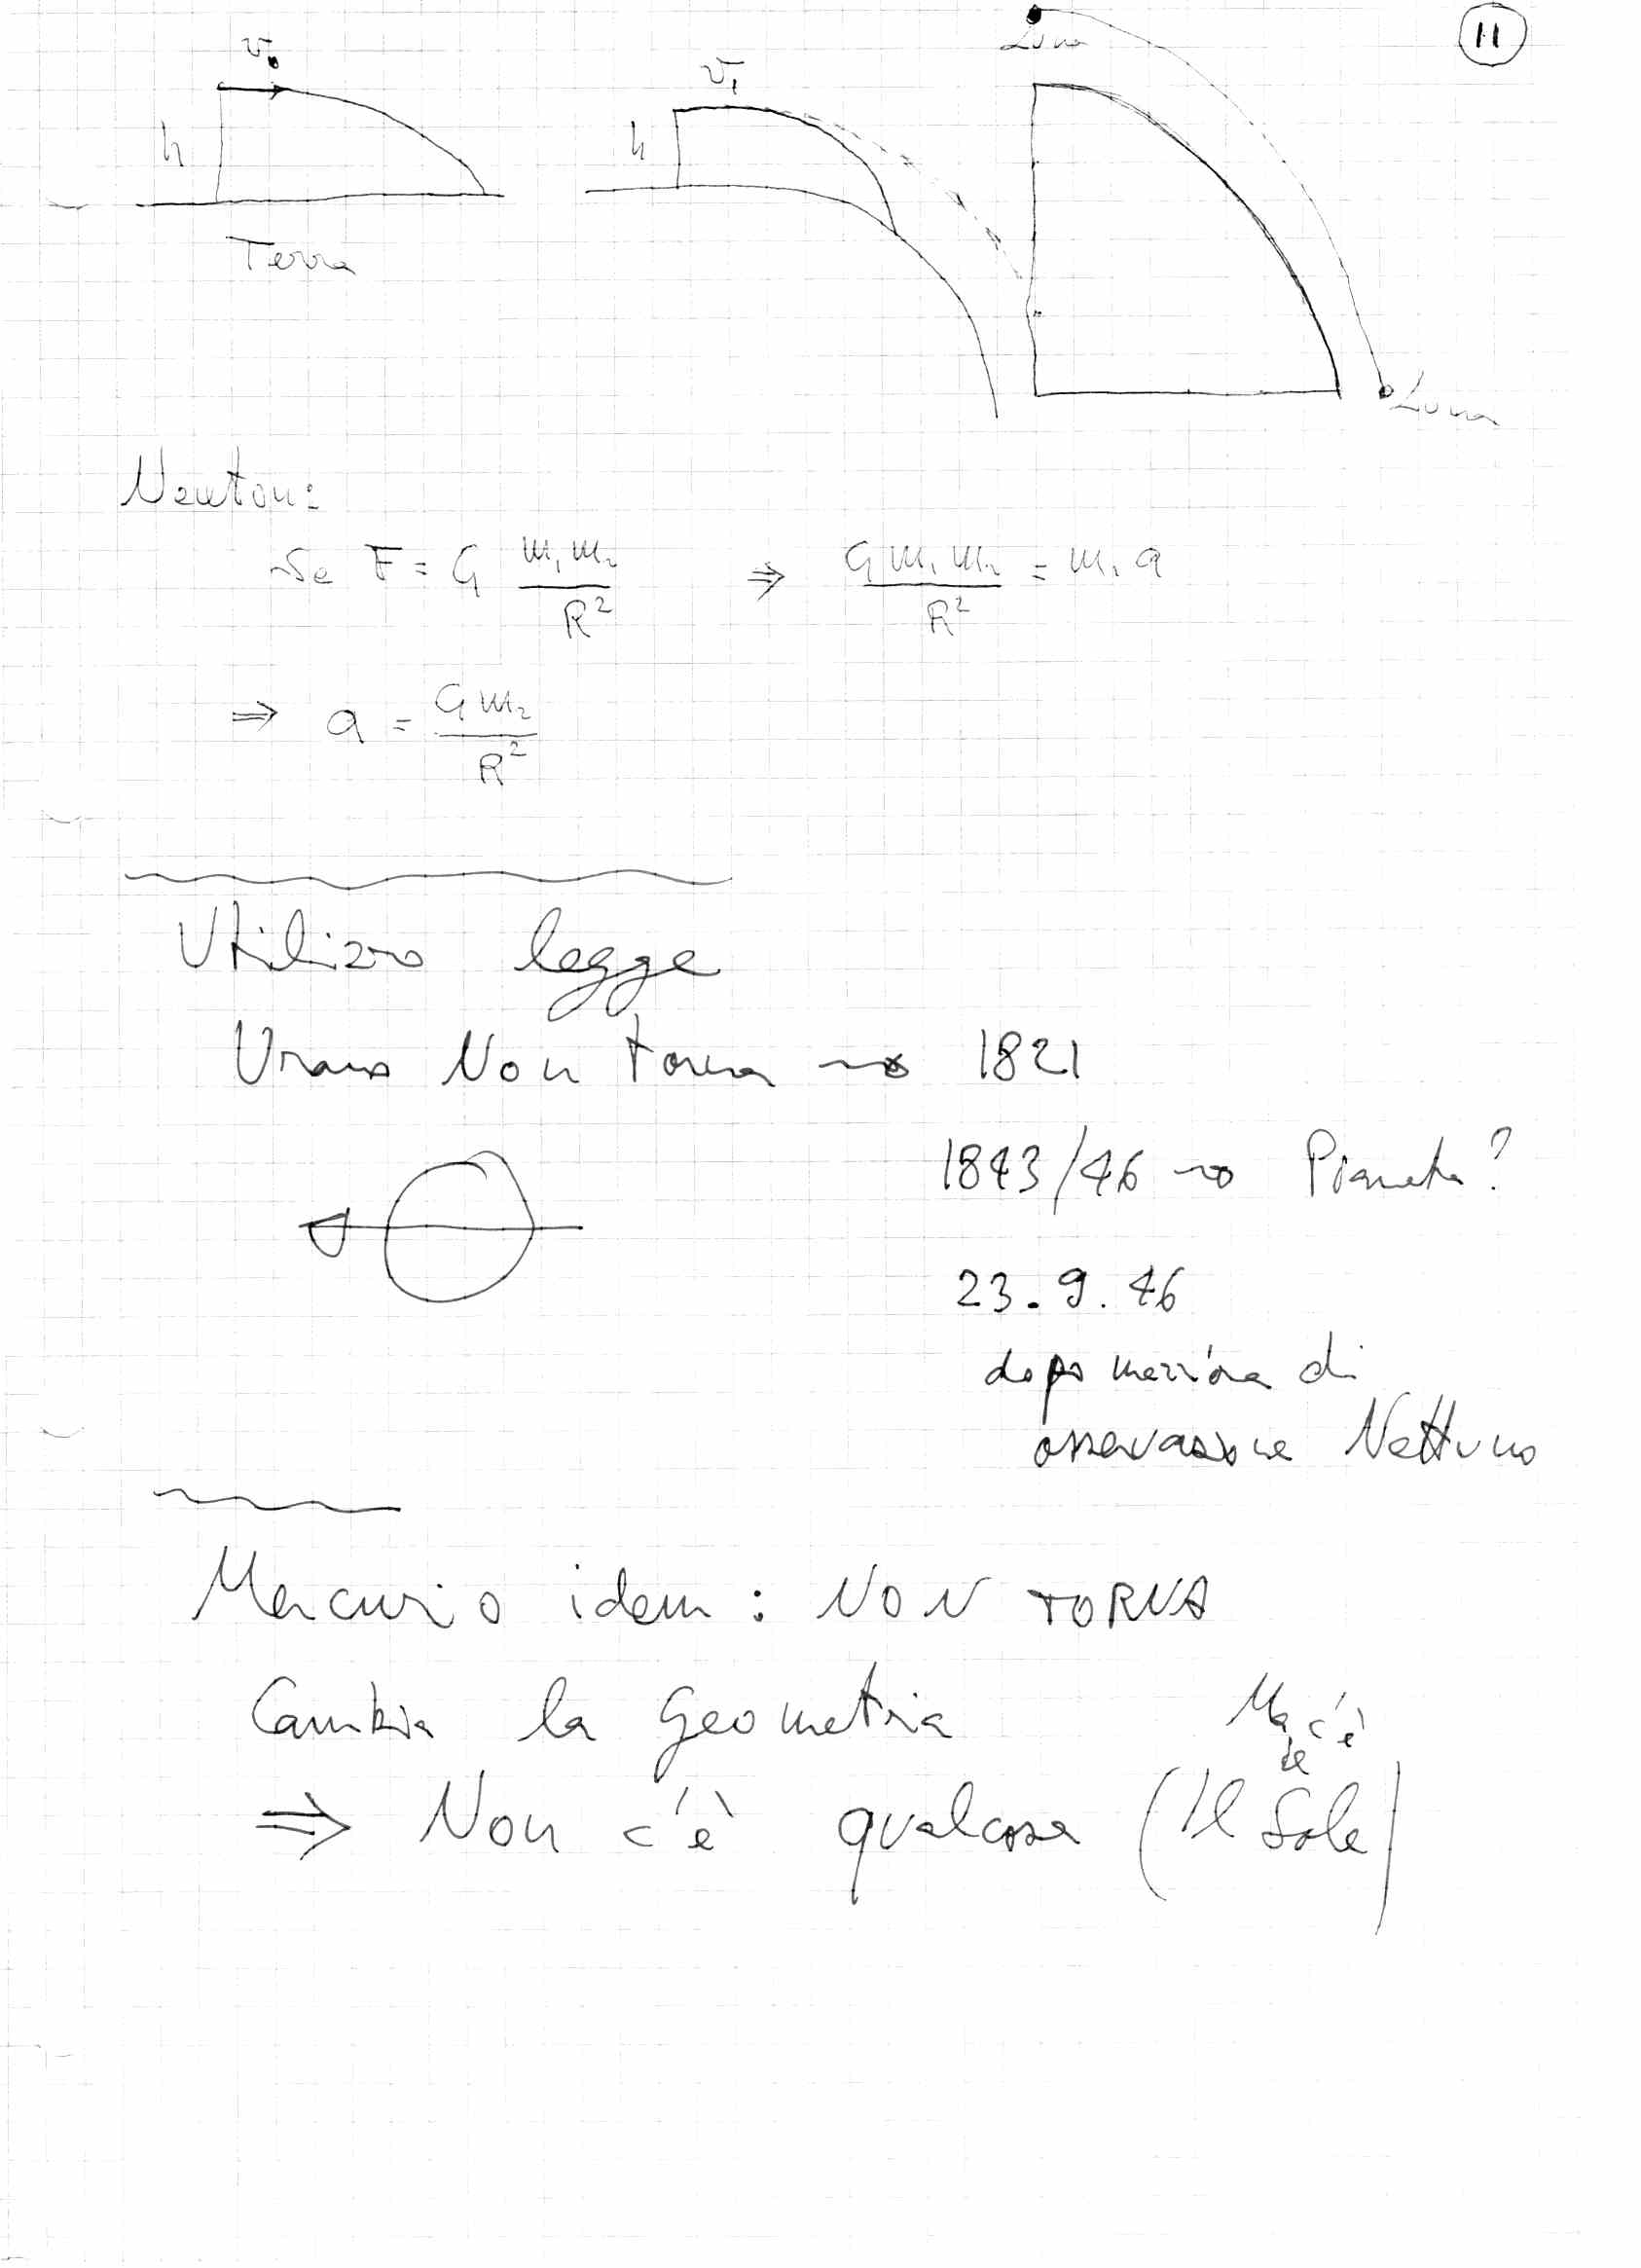 11
v₀
h
Terra
v₁
h
Luna
Luna
Newton:
Se F = G m₁ m₂ / R² ⇒ G m₁ m₂ / R² = m₁ a
⇒ a = G m₂ / R²
Utilizzo legge
Urano Non torna → 1821
1843/46 → Pianeta?
23.9.46
dopo mezz'ora di
osservazione Nettuno
Mercurio idem: NON TORNA
Cambia la Geometria
Ma c'è
⇒ Non c'è qualcosa (Il Sole)